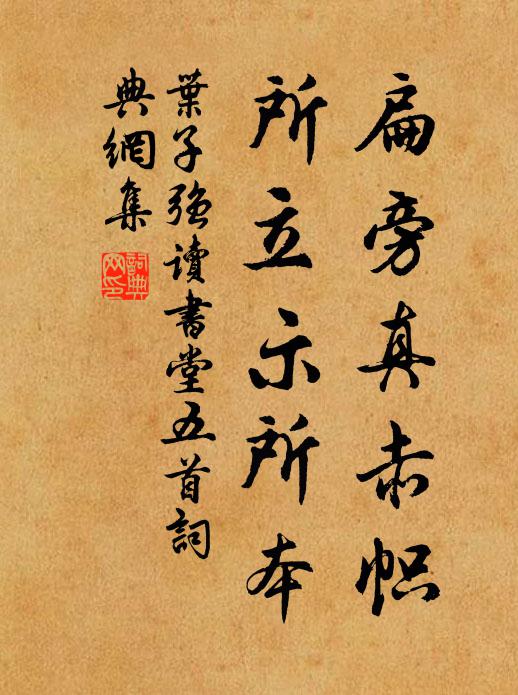 扁旁真赤帜
所立示所本
葉子强讀書堂五首詞
典網集
詞典网印